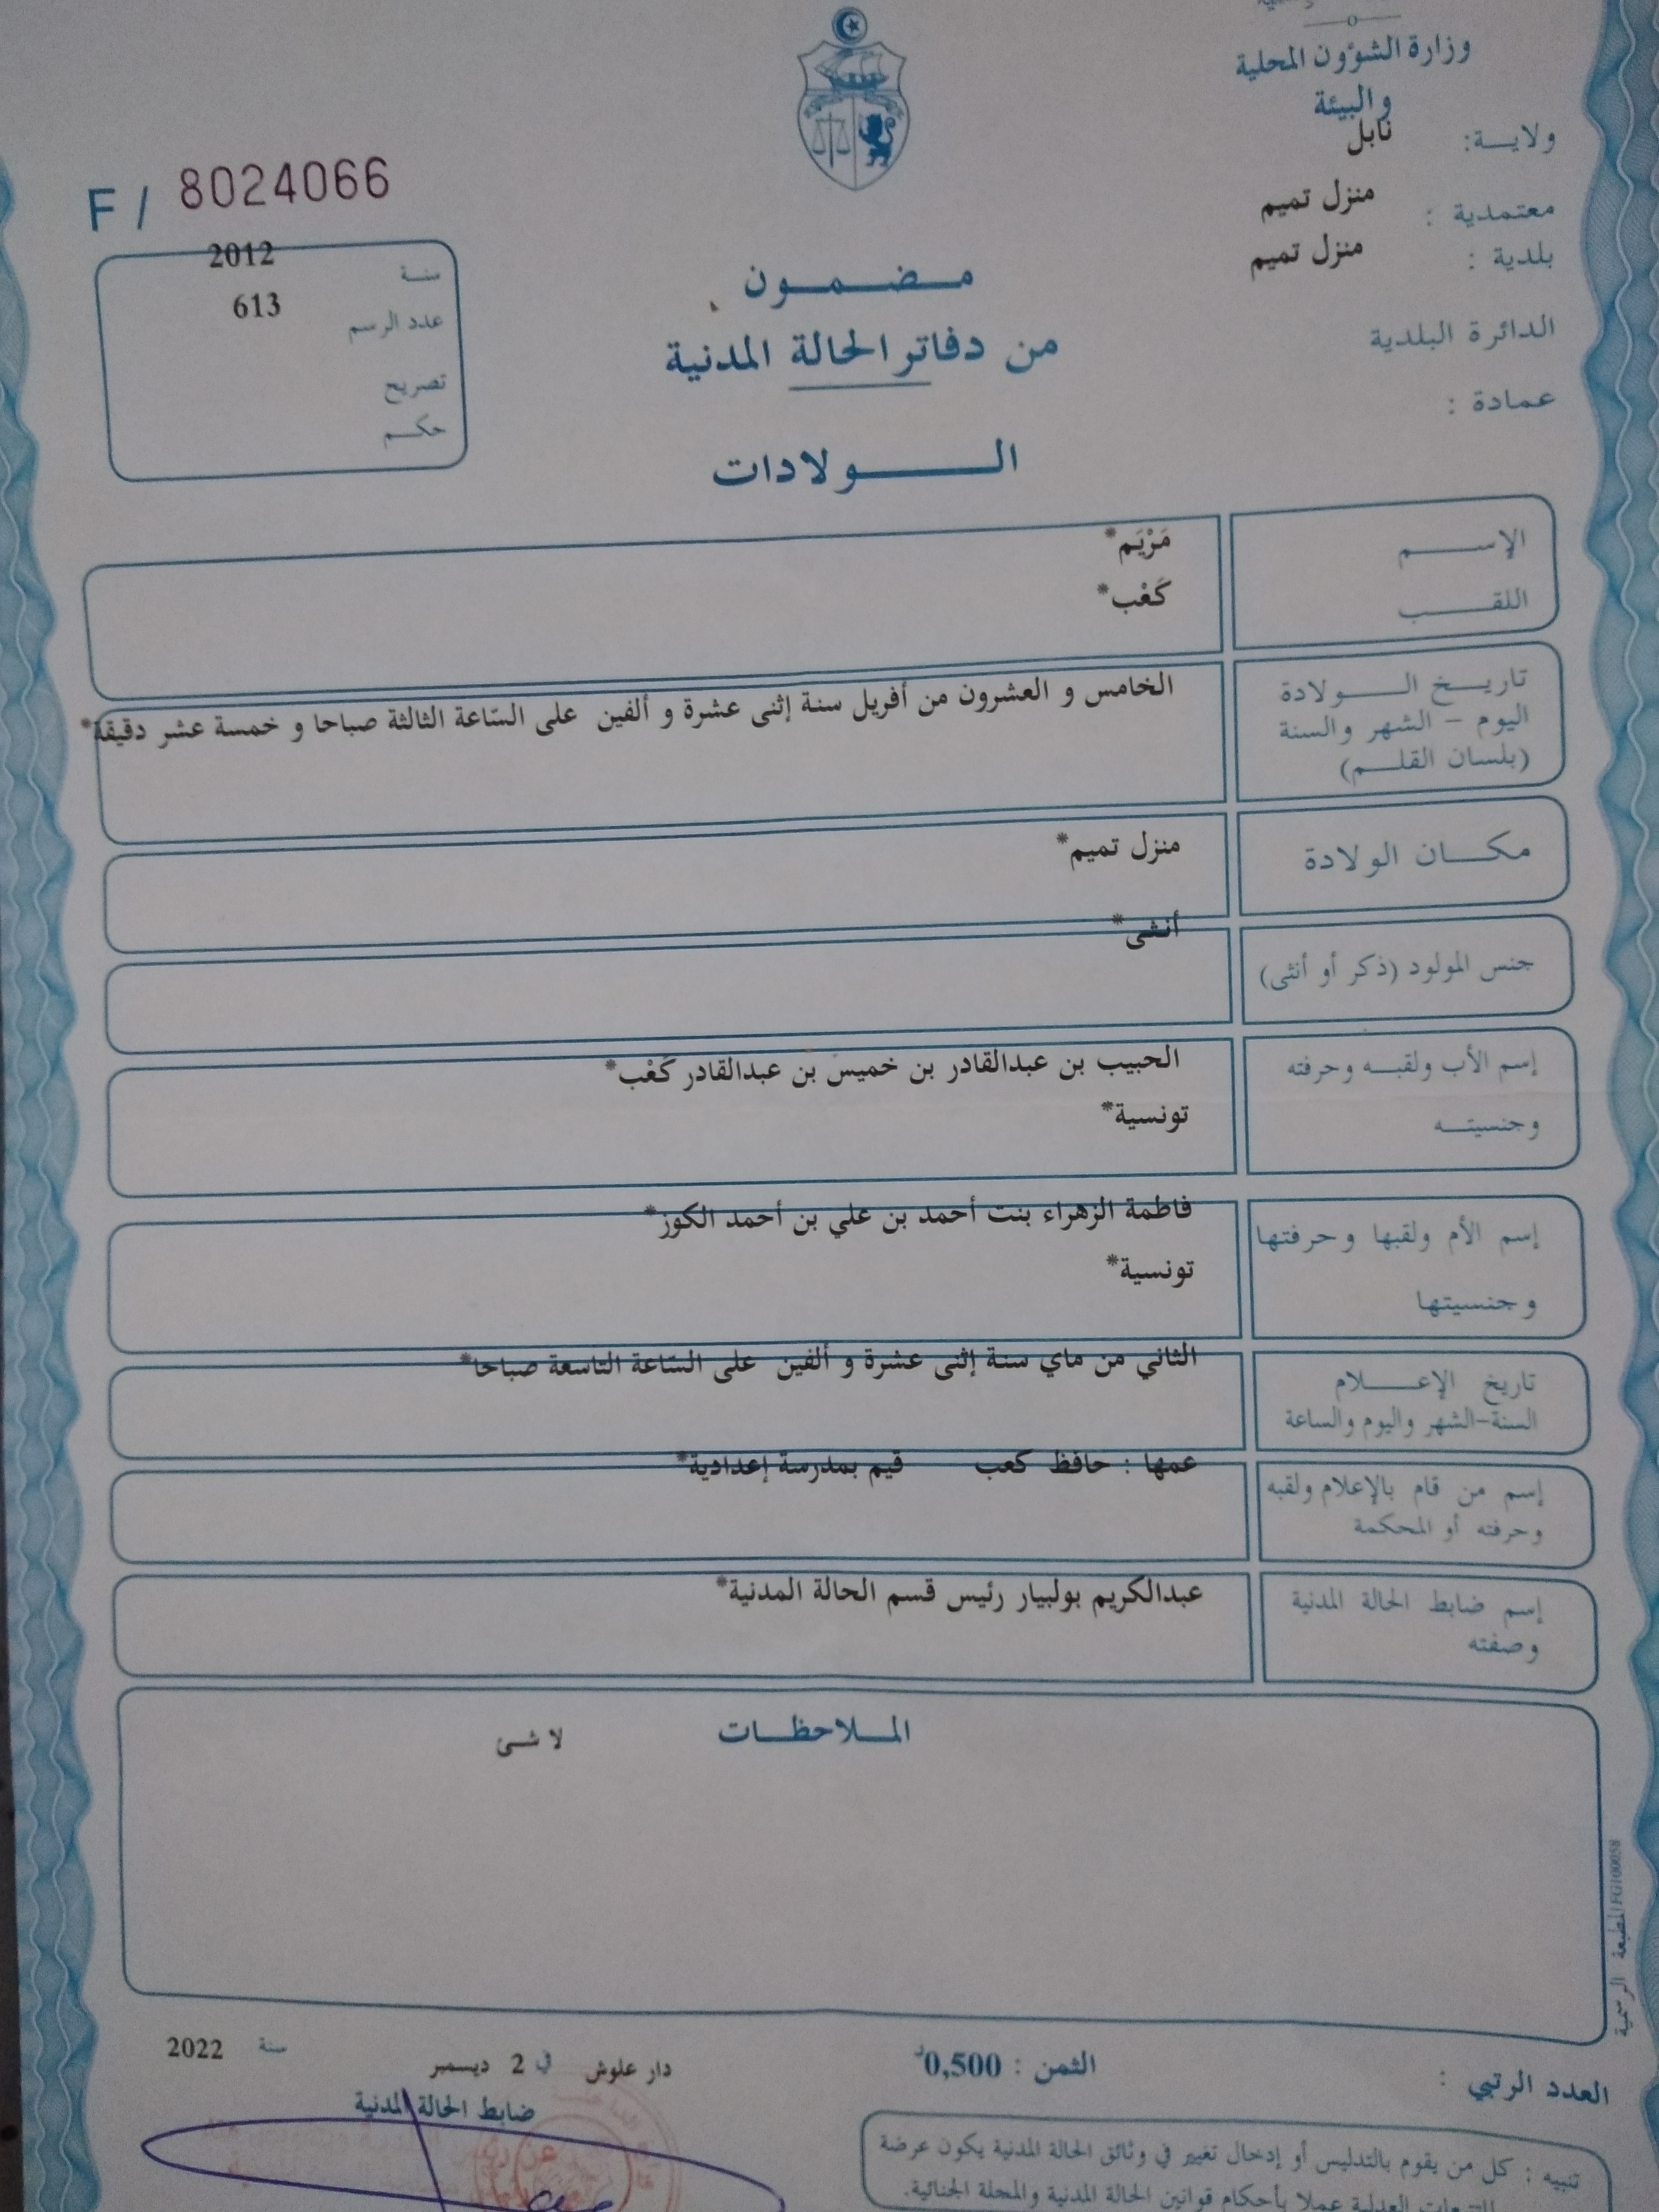 وزارة الشؤون المحلية
و البيئة
ولايـــة: نابل
معتمدية : منزل تميم
بلدية : منزل تميم
الدائرة البلدية
عمادة :
F / 8024066
سنة 2012
عدد الرسم 613
تصريح
حكم
مضمون
من دفاتر الحالة المدنية
الولادات
الإسم مَرْيَم*
اللقب كَعْب*
تاريخ الولادة
اليوم - الشهر والسنة
(بلسان القلم)
الخامس و العشرون من أفريل سنة إثنى عشرة و ألفين على السّاعة الثالثة صباحا و خمسة عشر دقيقة*
مكان الولادة منزل تميم*
جنس المولود (ذكر أو أنثى) أنثى*
إسم الأب ولقبه وحرفته الحبيب بن عبدالقادر بن خميس بن عبدالقادر كَعْب*
وجنسيته تونسية*
إسم الأم ولقبها وحرفتها فاطمة الزهراء بنت أحمد بن علي بن أحمد الكوز*
وجنسيتها تونسية*
تاريخ الإعلام
السنة-الشهر واليوم والساعة
الثاني من ماي سنة إثنى عشرة و ألفين على السّاعة التاسعة صباحا*
إسم من قام بالإعلام ولقبه
وحرفته أو المحكمة
عمها : حافظ كعب قيم بمدرسة إعدادية*
إسم ضابط الحالة المدنية
وصفته
عبدالكريم بولبيار رئيس قسم الحالة المدنية*
الملاحظات لا شئ
المطبعة الرسمية FG100058
العدد الرتبي :
الثمن : 0,500د
دار علوش في 2 ديسمبر سنة 2022
ضابط الحالة المدنية
تنبيه : كل من يقوم بالتدليس أو إدخال تغيير في وثائق الحالة المدنية يكون عرضة
العدلية عملا بأحكام قوانين الحالة المدنية والمجلة الجنائية.